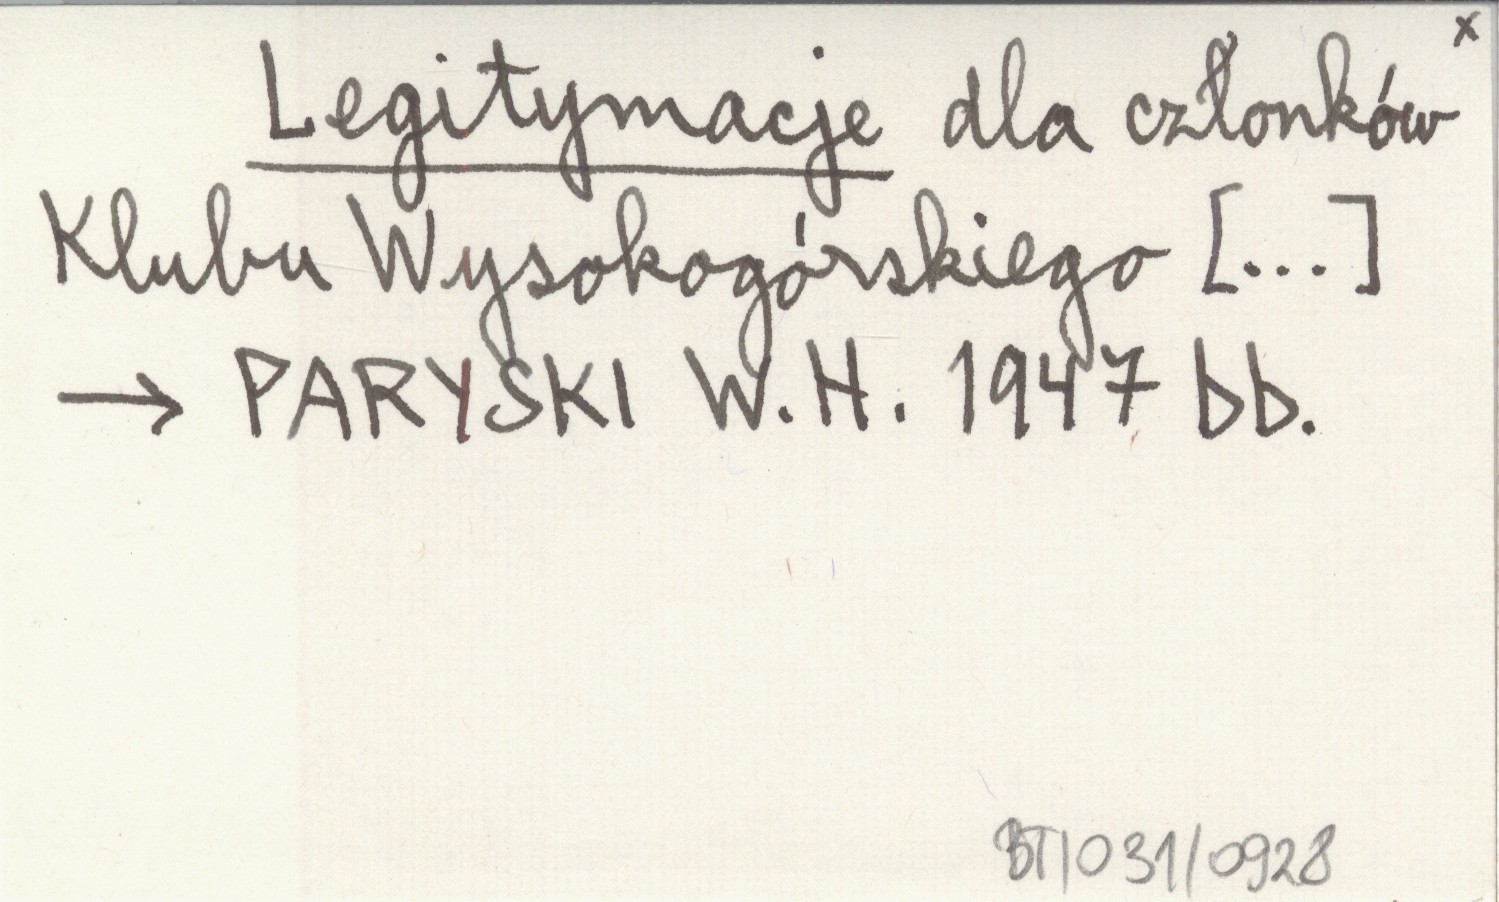 x
Legitymacje dla członków
Klubu Wysokogórskiego [...]
→ PARYSKI W.H. 1947 bb.
BT/031/0928